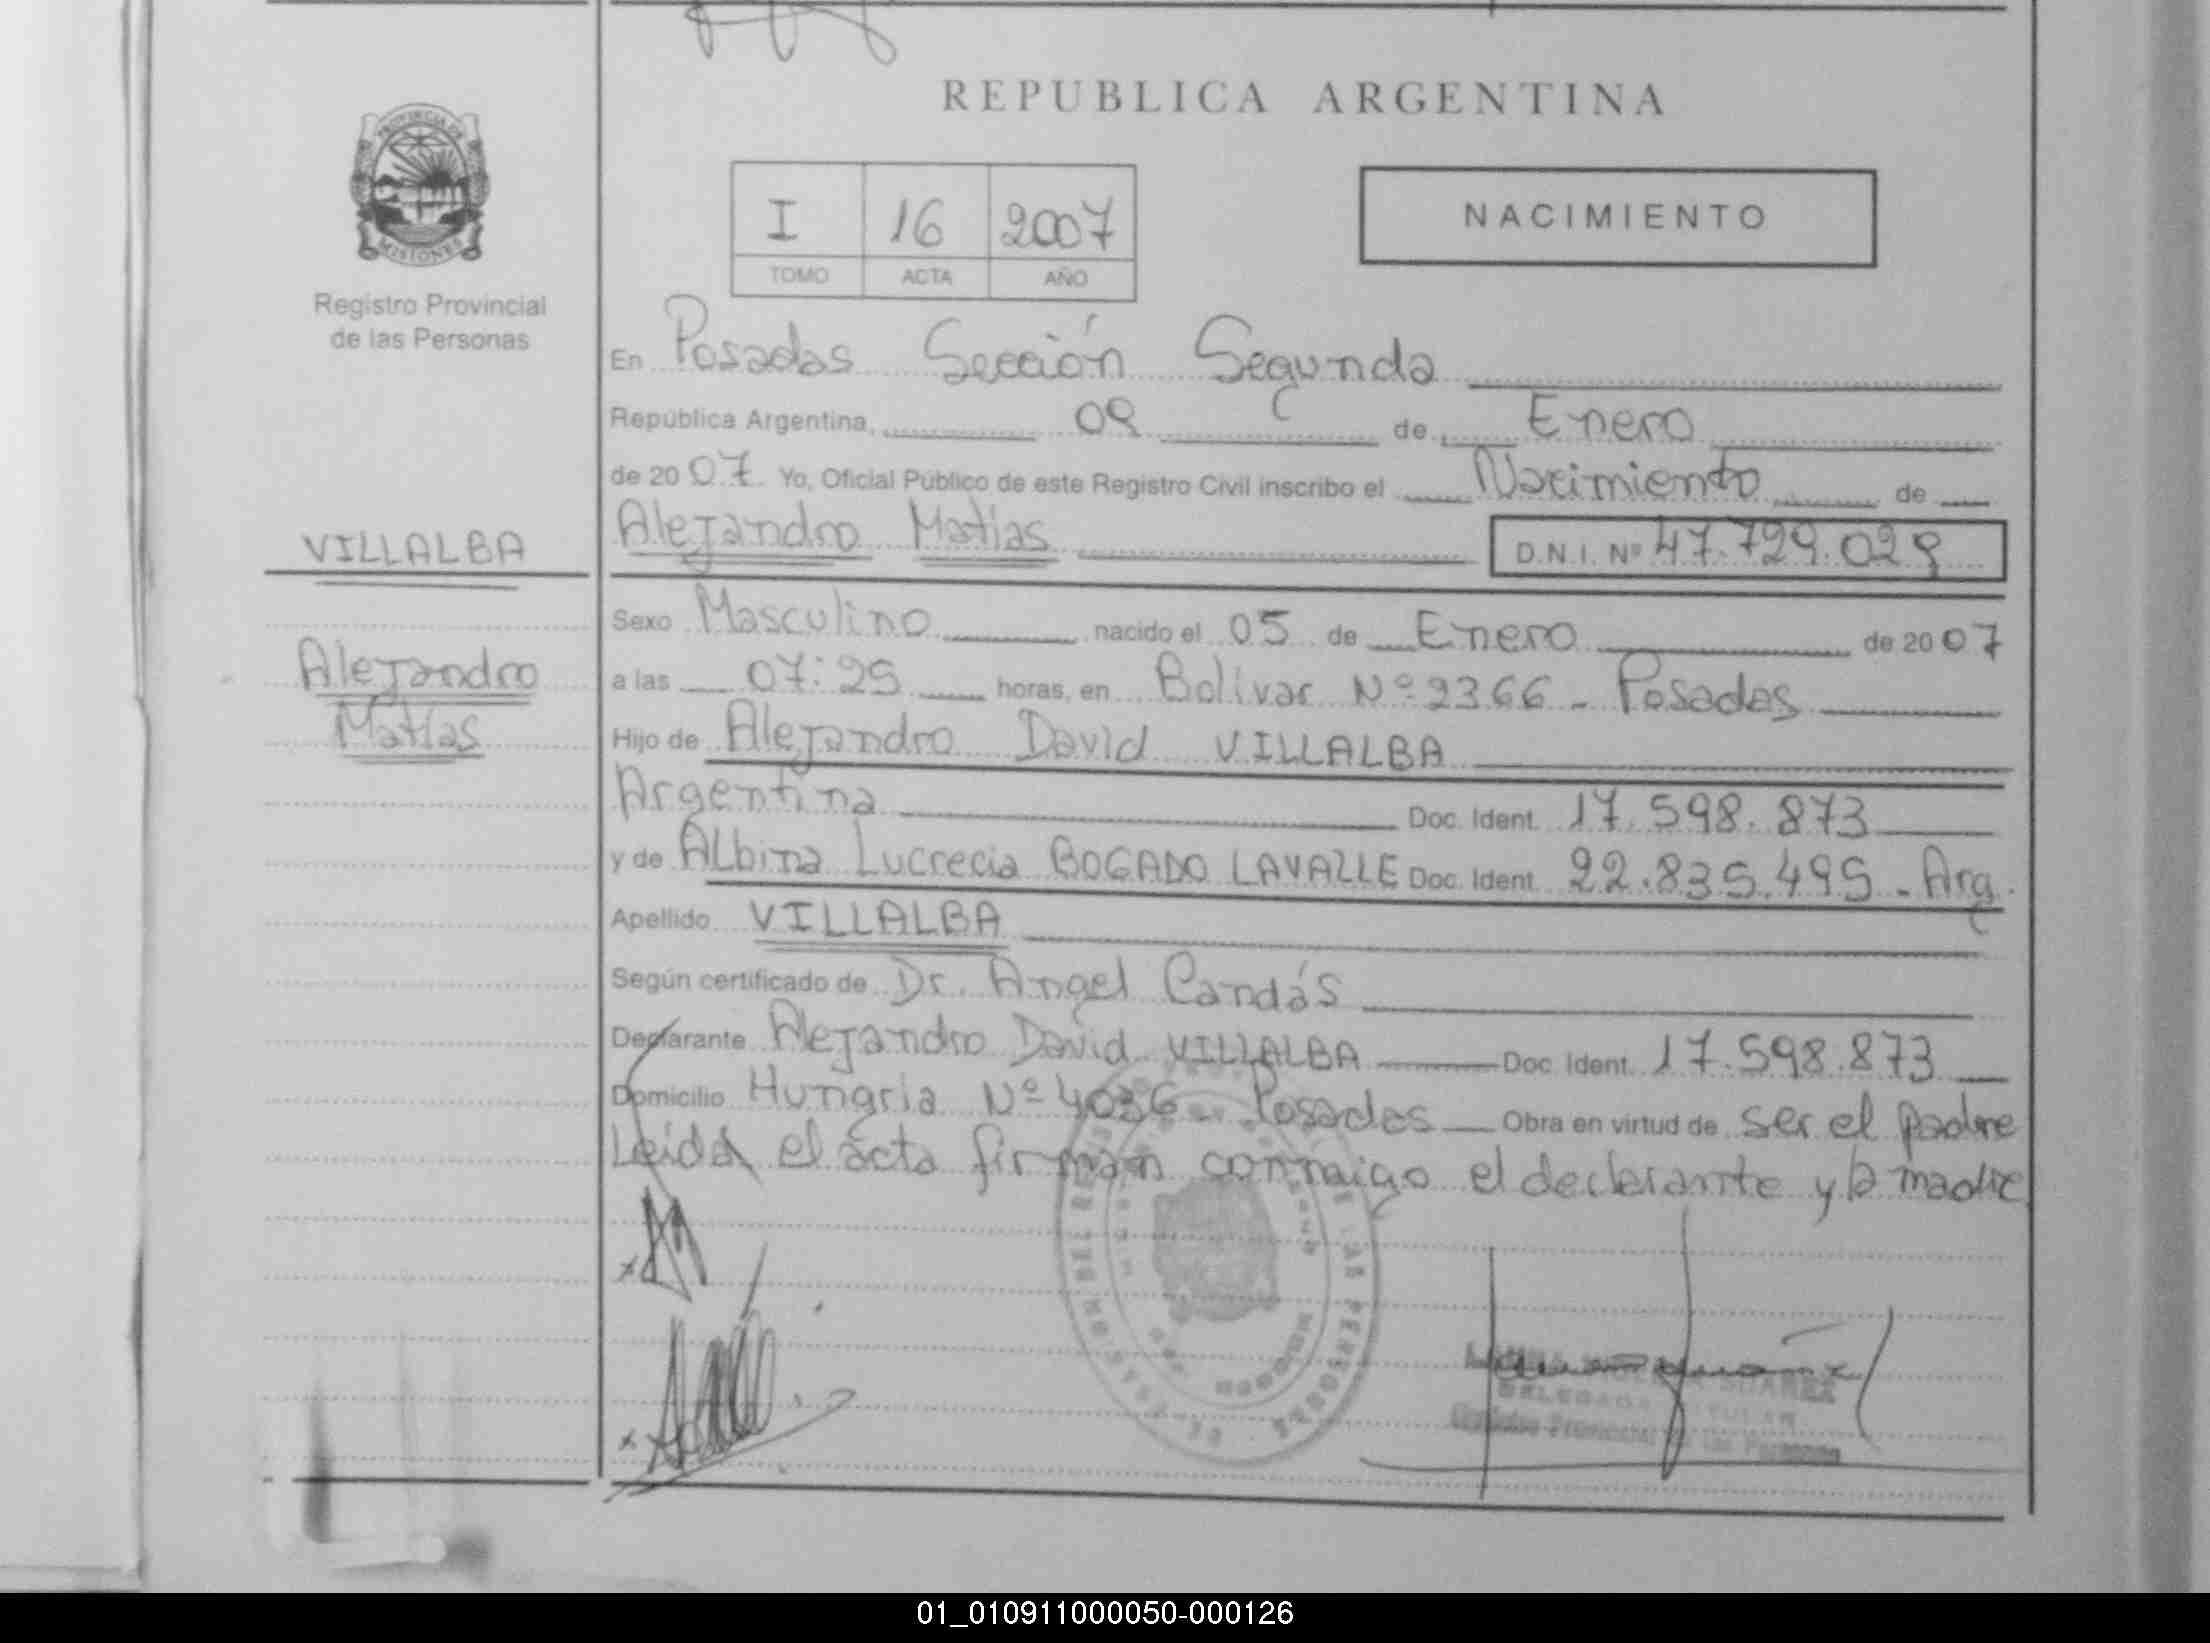 REPUBLICA ARGENTINA
PROVINCIA DE MISIONES
Registro Provincial
de las Personas
I 16 2007
TOMO ACTA AÑO
NACIMIENTO
En Posadas Sección Segunda
República Argentina, 09 de Enero
de 20 07 Yo, Oficial Público de este Registro Civil inscribo el Nacimiento de
VILLALBA
Alejandro Matías D.N.I. Nº 47.729.029
Sexo Masculino nacido el 05 de Enero de 20 07
Alejandro
Matías
a las 07:25 horas, en Bolívar Nº 2366 - Posadas
Hijo de Alejandro David VILLALBA
Argentina Doc. Ident. 17.598.873
y de Albina Lucrecia BOGADO LAVALLE Doc. Ident. 22.835.495 - Arg.
Apellido VILLALBA
Según certificado de Dr. Angel Candás
Declarante Alejandro David VILLALBA Doc. Ident. 17.598.873
Domicilio Hungria Nº 4036 - Posadas Obra en virtud de ser el padre
Leida el acta firman conmigo el declarante y la madre
SUAREZ
DELEGADA TITULAR
Registro Provincial de las Personas
01_010911000050-000126